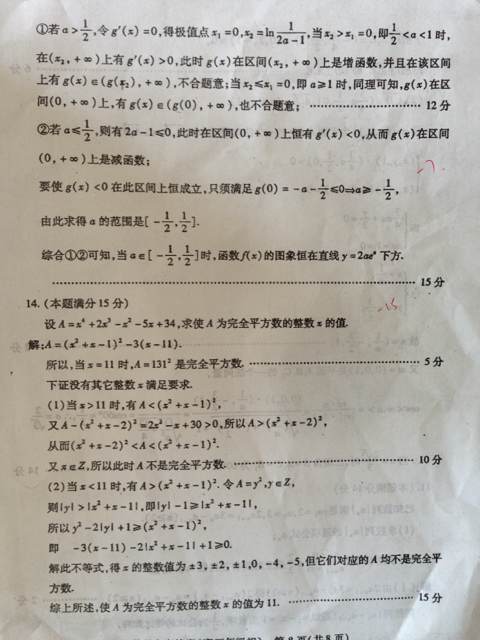 ①若a>1/2,令g′(x)=0,得极值点x₁=0,x₂=ln 1/(2a-1),当x₂>x₁=0,即1/2<a<1时,
在(x₂,+∞)上有g′(x)>0,此时g(x)在区间(x₂,+∞)上是增函数,并且在该区间
上有g(x)∈(g(x₂),+∞),不合题意;当x₂≤x₁=0,即a≥1时,同理可知,g(x)在区
间(0,+∞)上,有g(x)∈(g(0),+∞),也不合题意; ………………… 12分
②若a≤1/2,则有2a-1≤0,此时在区间(0,+∞)上恒有g′(x)<0,从而g(x)在区间
(0,+∞)上是减函数;
要使g(x)<0在此区间上恒成立,只须满足g(0)=-a-1/2≤0⇒a≥-1/2,
由此求得a的范围是[-1/2,1/2].
综合①②可知,当a∈[-1/2,1/2]时,函数f(x)的图象恒在直线y=2aeˣ下方.
………………………………………… 15分
14.(本题满分15分)
设A=x⁴+2x³-x²-5x+34,求使A为完全平方数的整数x的值.
解:A=(x²+x-1)²-3(x-11).
所以,当x=11时,A=131²是完全平方数. ………………………… 5分
下证没有其它整数x满足要求.
(1)当x>11时,有A<(x²+x-1)²,
又A-(x²+x-2)²=2x²-x+30>0,所以A>(x²+x-2)²,
从而(x²+x-2)²<A<(x²+x-1)².
又x∈Z,所以此时A不是完全平方数. ………………………… 10分
(2)当x<11时,有A>(x²+x-1)².令A=y²,y∈Z,
则|y|>|x²+x-1|,即|y|-1≥|x²+x-1|,
所以y²-2|y|+1≥(x²+x-1)²,
即 -3(x-11)-2|x²+x-1|+1≥0.
解此不等式,得x的整数值为±3,±2,±1,0,-4,-5,但它们对应的A均不是完全平
方数.
综上所述,使A为完全平方数的整数x的值为11. ………………… 15分